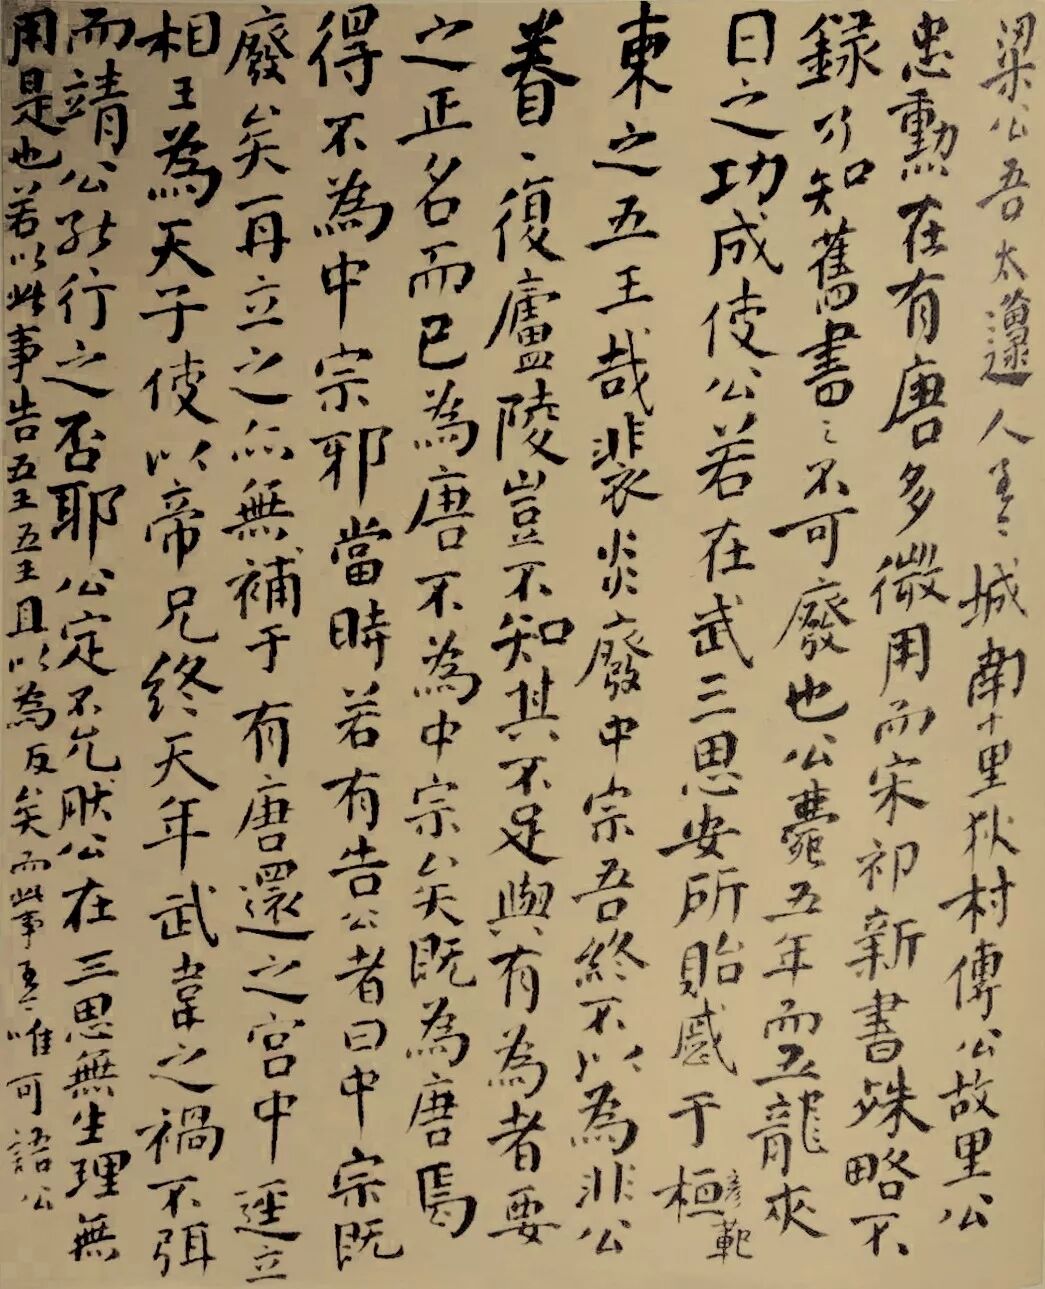 梁公吾太邍人主之城南十里狄村傳公故里公
忠勳在有唐多微用而宋祁新書殊略不
錄乃知舊書之不可廢也公薨五年而五龍夾
日之功成使公若在武三思安所貽慼于桓彥範
柬之五王哉裴炎廢中宗吾終不以為非公
眷眷復廬陵豈不知其不足與有為者要
之正名而已為唐不為中宗矣既為唐焉
得不為中宗邪當時若有告公者曰中宗既
廢矣再立之亦無補于有唐還之宮中逕立
相王為天子使以帝兄終天年武韋之禍不弭
而靖公能行之否耶公定不允肰公在三思無生理無
用是也若以此事告五王五王且以為反矣而此事唯可語公